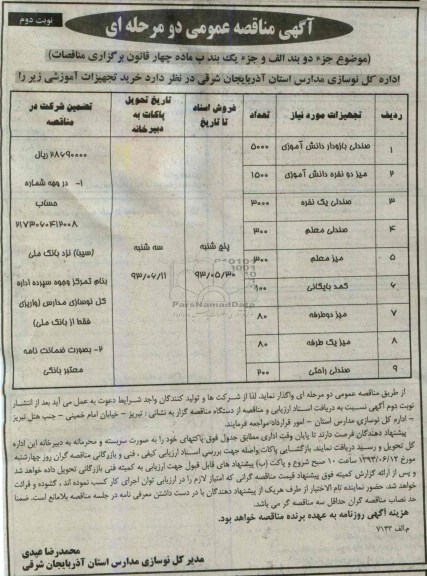 نوبت دوم
آگهی مناقصه عمومی دو مرحله ای
(موضوع جزء دو بند الف و جزء یک بند ب ماده چهار قانون برگزاری مناقصات)
اداره کل نوسازی مدارس استان آذربایجان شرقی در نظر دارد خرید تجهیزات آموزشی زیر را
ردیف | تجهیزات مورد نیاز | تعداد | فروش اسناد تا تاریخ | تاریخ تحویل پاکات به دبیرخانه | تضمین شرکت در مناقصه
۱ صندلی بازودار دانش آموزی ۵۰۰۰
۲ میز دو نفره دانش آموزی ۱۵۰۰
۳ صندلی یک نفره ۳۰۰۰
۴ صندلی معلم ۳۰۰
۵ میز معلم ۳۰۰
۶ کمد بایگانی ۱۰۰
۷ میز دوطرفه ۸۰
۸ میز یک طرفه ۸۰
۹ صندلی راحتی ۲۰۰
پنج شنبه
۹۳/۰۵/۳۰
سه شنبه
۹۳/۰۶/۱۱
۲۸۶۹۰۰۰۰۰ ریال
۱- در وجه شماره
حساب
۲۱۷۳۰۶۰۴۱۲۰۰۸
(سیبا) نزد بانک ملی
بنام تمرکز وجوه سپرده اداره
کل نوسازی مدارس (واریزی
فقط از بانک ملی)
۲- بصورت ضمانت نامه
معتبر بانکی
ParsNamadData
از طریق مناقصه عمومی دو مرحله ای واگذار نماید. لذا از شرکت ها و تولید کنندگان واجد شرایط دعوت به عمل می آید بعد از انتشار
نوبت دوم آگهی نسبت به دریافت اسناد ارزیابی و مناقصه از دستگاه مناقصه گزار به نشانی : تبریز - خیابان امام خمینی - جنب هتل تبریز
- اداره کل نوسازی مدارس استان - امور قرارداد مراجعه فرمایند.
پیشنهاد دهندگان فرصت دارند تا پایان وقت اداری مطابق جدول فوق پاکتهای خود را به صورت سربسته و محرمانه به دبیرخانه این اداره
کل تحویل و رسید دریافت نمایند. بازگشایی پاکات واصله جهت بررسی اسناد ارزیابی کیفی ، فنی و بازرگانی مناقصه گران روز چهارشنبه
مورخ ۱۳۹۳/۰۶/۱۲ ساعت ۱۰ صبح شروع و پاکت (ب) پیشنهاد های قابل قبول جهت ارزیابی به کمیته فنی بازرگانی تحویل داده خواهد شد
و پس از ارائه گزارش کمیته فوق پیشنهاد قیمت مناقصه گرانی که امتیاز لازم را در ارزیابی توان اجرای کار کسب نموده اند ، گشوده و قرائت
خواهد شد. حضور نماینده تام الاختیار از طرف هریک از پیشنهاد دهندگان با در دست داشتن معرفی نامه در جلسه مناقصه بلامانع است. ضمنا
حد نصاب مناقصه گران حداقل سه مناقصه گر می باشد.
هزینه آگهی روزنامه به عهده برنده مناقصه خواهد بود.
م.الف ۷۱۳۳
محمدرضا عیدی
مدیر کل نوسازی مدارس استان آذربایجان شرقی